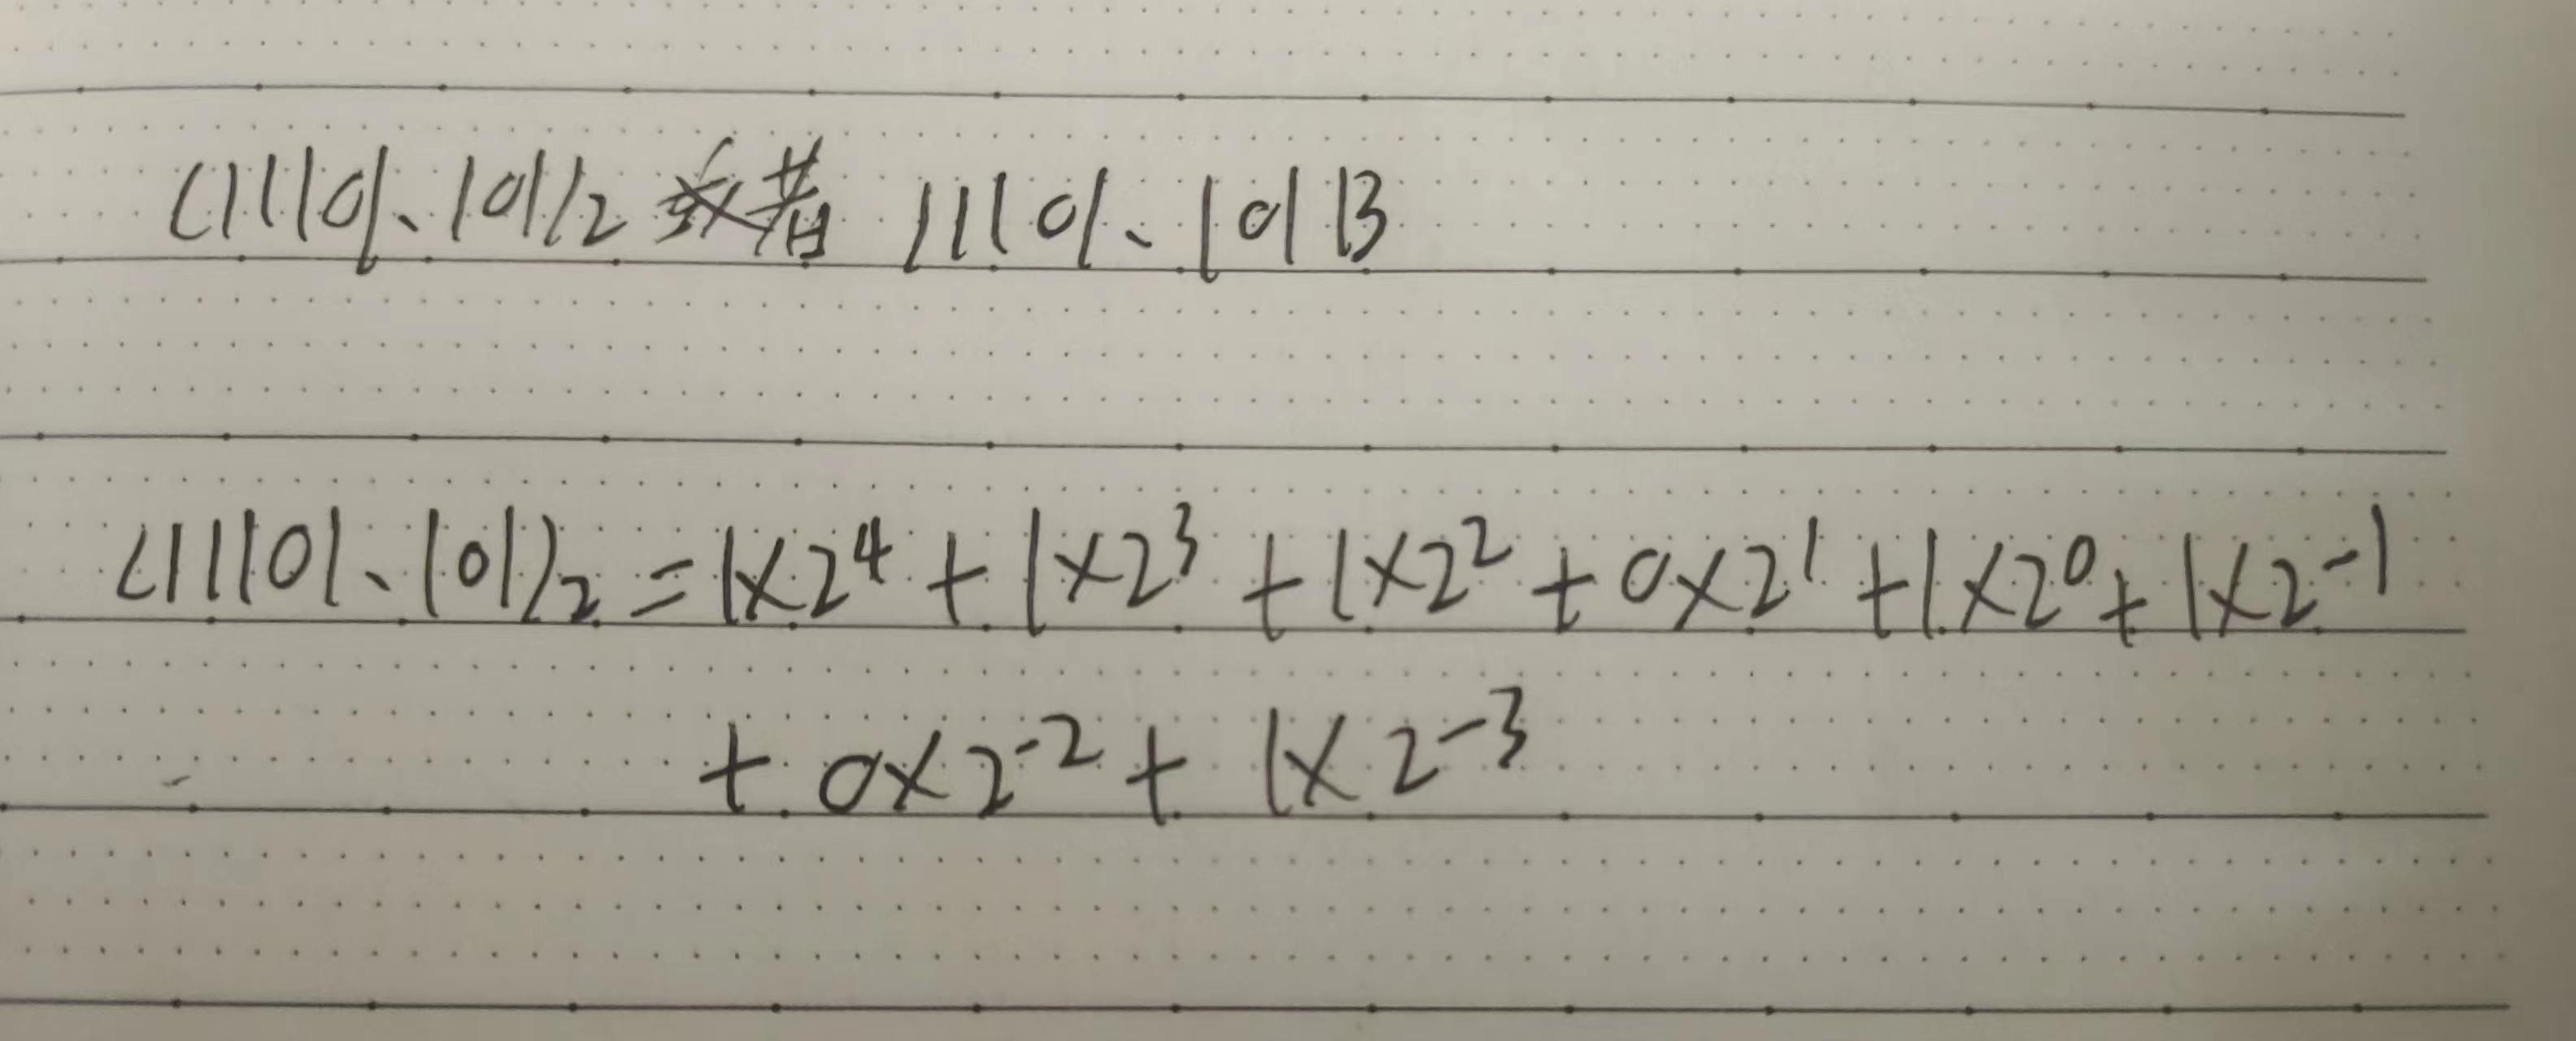 (11101.101)₂ 或者 11101.101B
(11101.101)₂ = 1×2⁴ + 1×2³ + 1×2² + 0×2¹ + 1×2⁰ + 1×2⁻¹
+ 0×2⁻² + 1×2⁻³